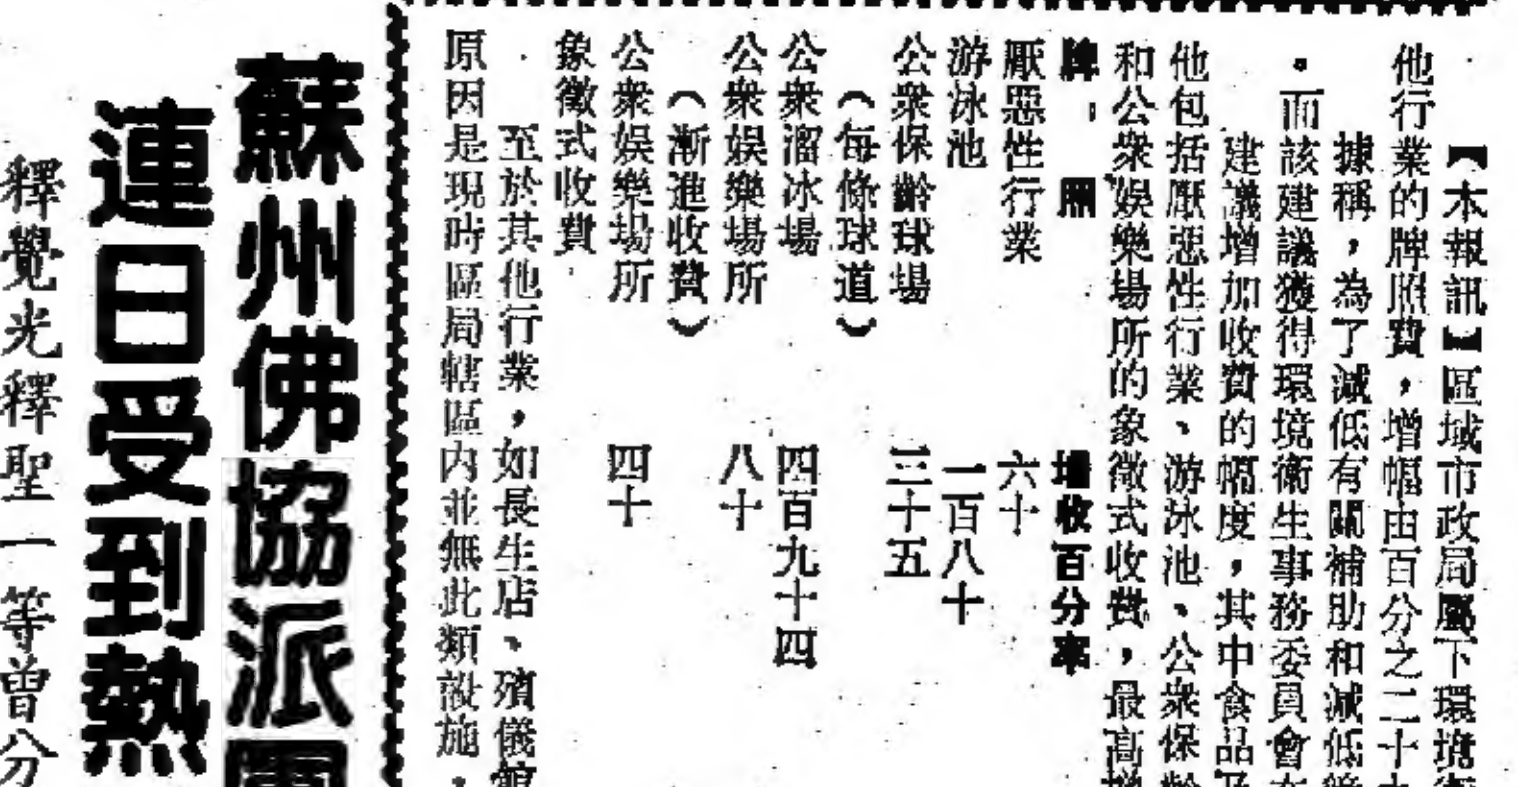 【本報訊】區域市政局屬下環境衞
他行業的牌照費，增幅由百分之二十
據稱，為了減低有關補助和減低
。而該建議獲得環境衞生事務委員會在
建議增加收費的幅度，其中食品及
他包括厭惡性行業、游泳池、公衆保齡
和公衆娛樂場所的象徵式收費，最高增
牌照 增收百分率
厭惡性行業 六十
游泳池 一百八十
公衆保齡球場 三十五
（每條球道）
公衆溜冰場 四百九十四
公衆娛樂場所 八十
（漸進收費）
公衆娛樂場所 四十
象徵式收費
至於其他行業，如長生店、殯儀館
原因是現時區局轄區内並無此類設施，
蘇州佛協派團
連日受到熱
釋覺光釋聖一等曾分